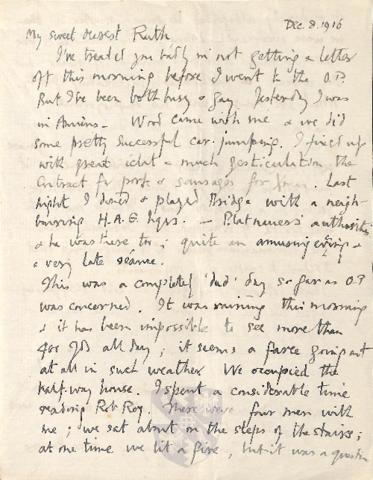 Dec. 8. 1916
My sweet dearest Ruth
I've treated you badly in not getting a letter
off this morning before I went to the O.P.
But I've been both busy & gay. Yesterday I was
in Amiens – Wood came with me & we did
some pretty successful car-jumping. I fixed up
with great éclat & much gesticulation the
contract for pork & sausages for Xmas. Last
night I dined & played Bridge with a neigh-
bouring H.A.G. Hqrs. – Platnauer's authorities
& he was there too; quite an amusing evening &
a very late séance.
This was a completely 'dud' day so far as O.P
was concerned. It was raining this morning
& it has been impossible to see more than
400 yds all day; it seems a farce going out
at all in such weather. We occupied the
half-way house. I spent a considerable time
reading Rob Roy. There were four men with
me; we sat about on the steps of the stairs;
at one time we lit a fire, but it was a question